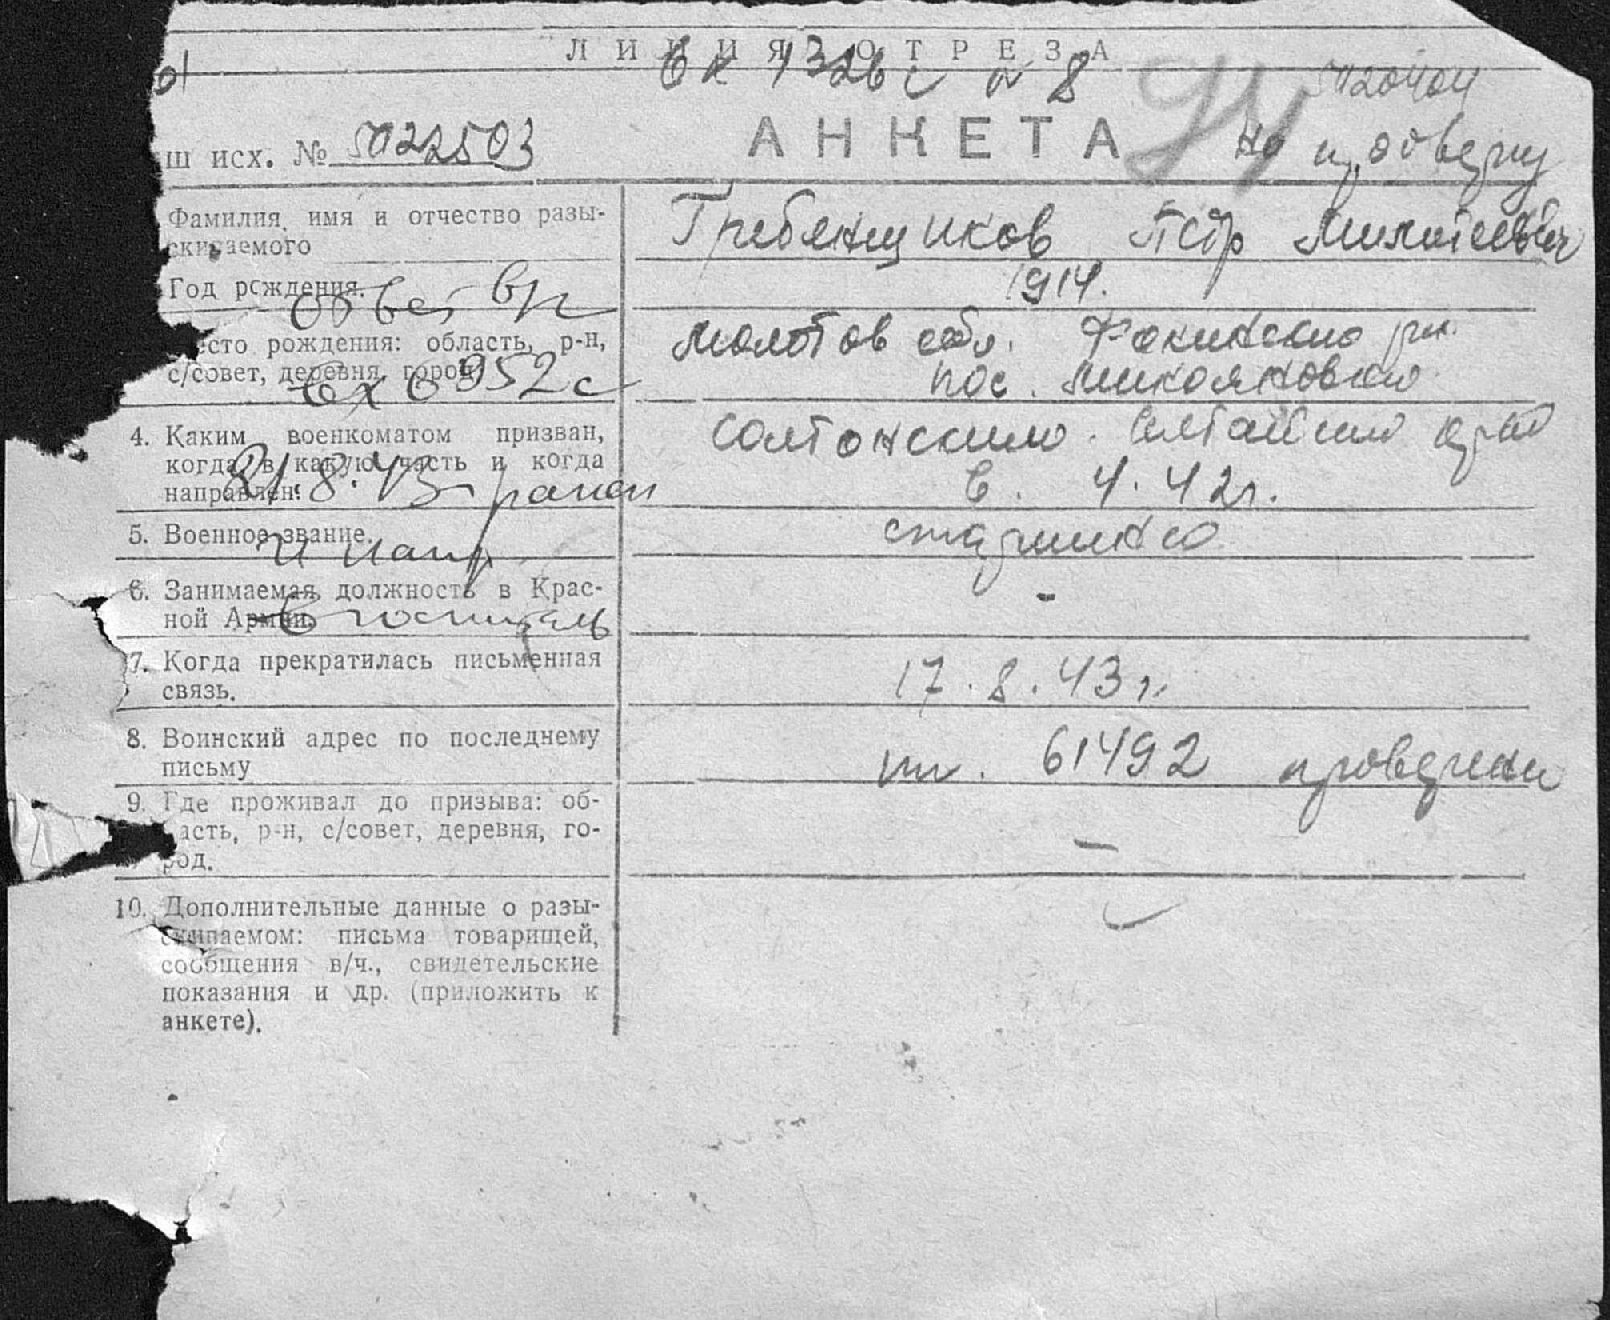 ЛИНИЯ ОТРЕЗА
Вх 1326с № 8
АНКЕТА
ш исх. № 5022503
Фамилия, имя и отчество разы-
скиваемого
Гребенщиков Петр
Год рождения.
1914.
ответ вч
есто рождения: область, р-н,
с/совет, деревня, город
Молотов обл. Фокинского р-н.
пос.
Вх 0952с
4. Каким военкоматом призван,
когда, в какую часть и когда
направлен.
Солтонским. Алтайский край
в. 4.42г.
21.8.43 ранен
5. Военное звание.
старшина
и напр
6. Занимаемая должность в Крас-
ной Армии.
-
в госпиталь
7. Когда прекратилась письменная
связь.
17.8.43г.
8. Воинский адрес по последнему
письму
пп. 61492
9. Где проживал до призыва: об-
асть, р-н, с/совет, деревня, го-
род.
—
10. Дополнительные данные о разы-
скиваемом: письма товарищей,
сообщения в/ч., свидетельские
показания и др. (приложить к
анкете).